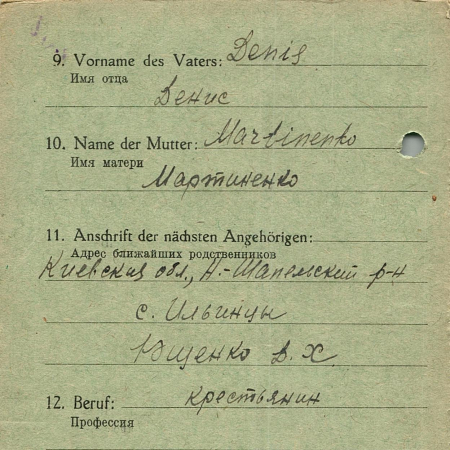 9. Vorname des Vaters: Denis
Имя отца
Денис
10. Name der Mutter: Martinenko
Имя матери
Мартиненко
11. Anschrift der nächsten Angehörigen:
Адрес ближайших родственников
Киевская обл., Н.-Шапельский р-н
с. Ильинцы
Ющенко В. Х.
12. Beruf: крестьянин
Профессия